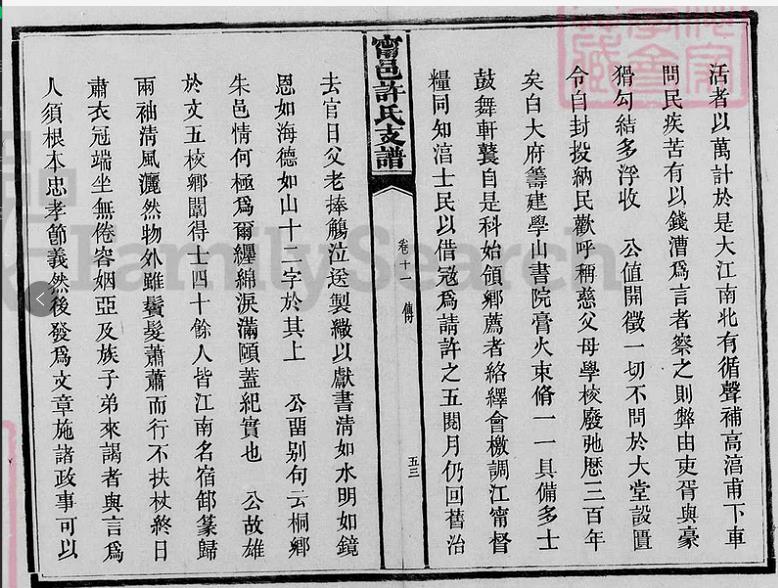 活者以萬計於是大江南北有循聲補高淯甫下車
問民疾苦有以錢漕爲言者察之則弊由吏胥與豪
猾勾結多浮收 公值開徵一切不問於大堂設匱
令自封投納民歡呼稱慈父母學校廢弛歷三百年
矣白大府籌建學山書院膏火束脩一一具備多士
鼓舞軒鼚自是科始領鄉薦者絡繹會檄調江甯督
糧同知淯士民以借寇爲請許之五閱月仍回舊治
甯邑許氏支譜
卷十一 傳
五三
去官日父老捧觴泣送製繖以獻書清如水明如鏡
恩如海德如山十二字於其上 公畱别句云桐鄉
朱邑情何極爲爾纏綿淚滿頤蓋紀實也 公故雄
於文五校鄉闈得士四十餘人皆江南名宿卸篆歸
兩袖清風灑然物外雖鬢髮蕭蕭而行不扶杖終日
肅衣冠端坐無倦容姻亞及族子弟來謁者與言爲
人須根本忠孝節義然後發爲文章施諸政事可以
FamilySearch